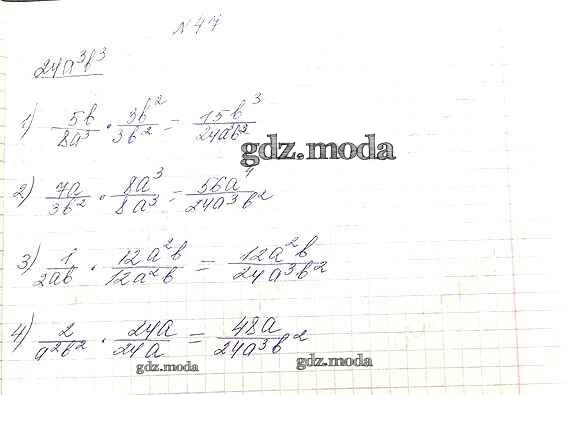 № 47
24a³b³
1) 5b/8a³ · 3b²/3b² = 15b³/24ab²
gdz.moda
2) 7a/3b² · 8a³/8a³ = 56a⁴/24a³b²
3) 1/2ab · 12a²b/12a²b = 12a²b/24a³b²
4) 2/a²b² · 24a/24a = 48a/24a³b²
gdz.moda gdz.moda